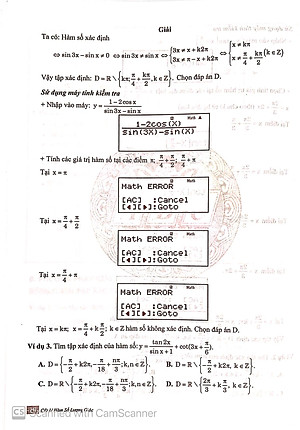 Giải
Ta có: Hàm số xác định
⇔ sin3x − sinx ≠ 0 ⇔ sin3x ≠ sinx ⇔ { 3x ≠ x + k2π ; 3x ≠ π − x + k2π ⇔ { x ≠ kπ ; x ≠ π/4 + kπ/2 (k ∈ Z)
Vậy tập xác định: D = R \ {kπ; π/4 + kπ/2, k ∈ Z}. Chọn đáp án D.
Sử dụng máy tính kiểm tra
+ Nhập vào máy: y = (1−2cosx)/(sin3x − sinx)
Math
1−2cos(X)
sin(3X)−sin(X)
+ Tính các giá trị hàm số tại các điểm π; π/4 + π/2; π/4 + π
Tại x = π
Math ERROR
[AC] :Cancel
[◄][►]:Goto
Tại x = π/4 + π/2
Math ERROR
[AC] :Cancel
[◄][►]:Goto
Tại x = π/4 + π
Math ERROR
[AC] :Cancel
[◄][►]:Goto
Tại x = kπ; x = π/4 + k π/2; k ∈ Z hàm số không xác định. Chọn đáp án D.
Ví dụ 3. Tìm tập xác định của hàm số: y = tan2x/(sinx + 1) + cot(3x + π/6).
A. D = {−π/2 + k2π, −π/18 + nπ/3; k, n ∈ Z}. B. D = R \ {−π/2 + k2π, k ∈ Z}.
C. D = R \ {−π/2 + k2π, −π/18 + nπ/3; k, n ∈ Z}. D. D = R \ {2π/3 + k π/2, k ∈ Z}.
CS Scanned with CamScanner
Hàm Số Lượng Giác